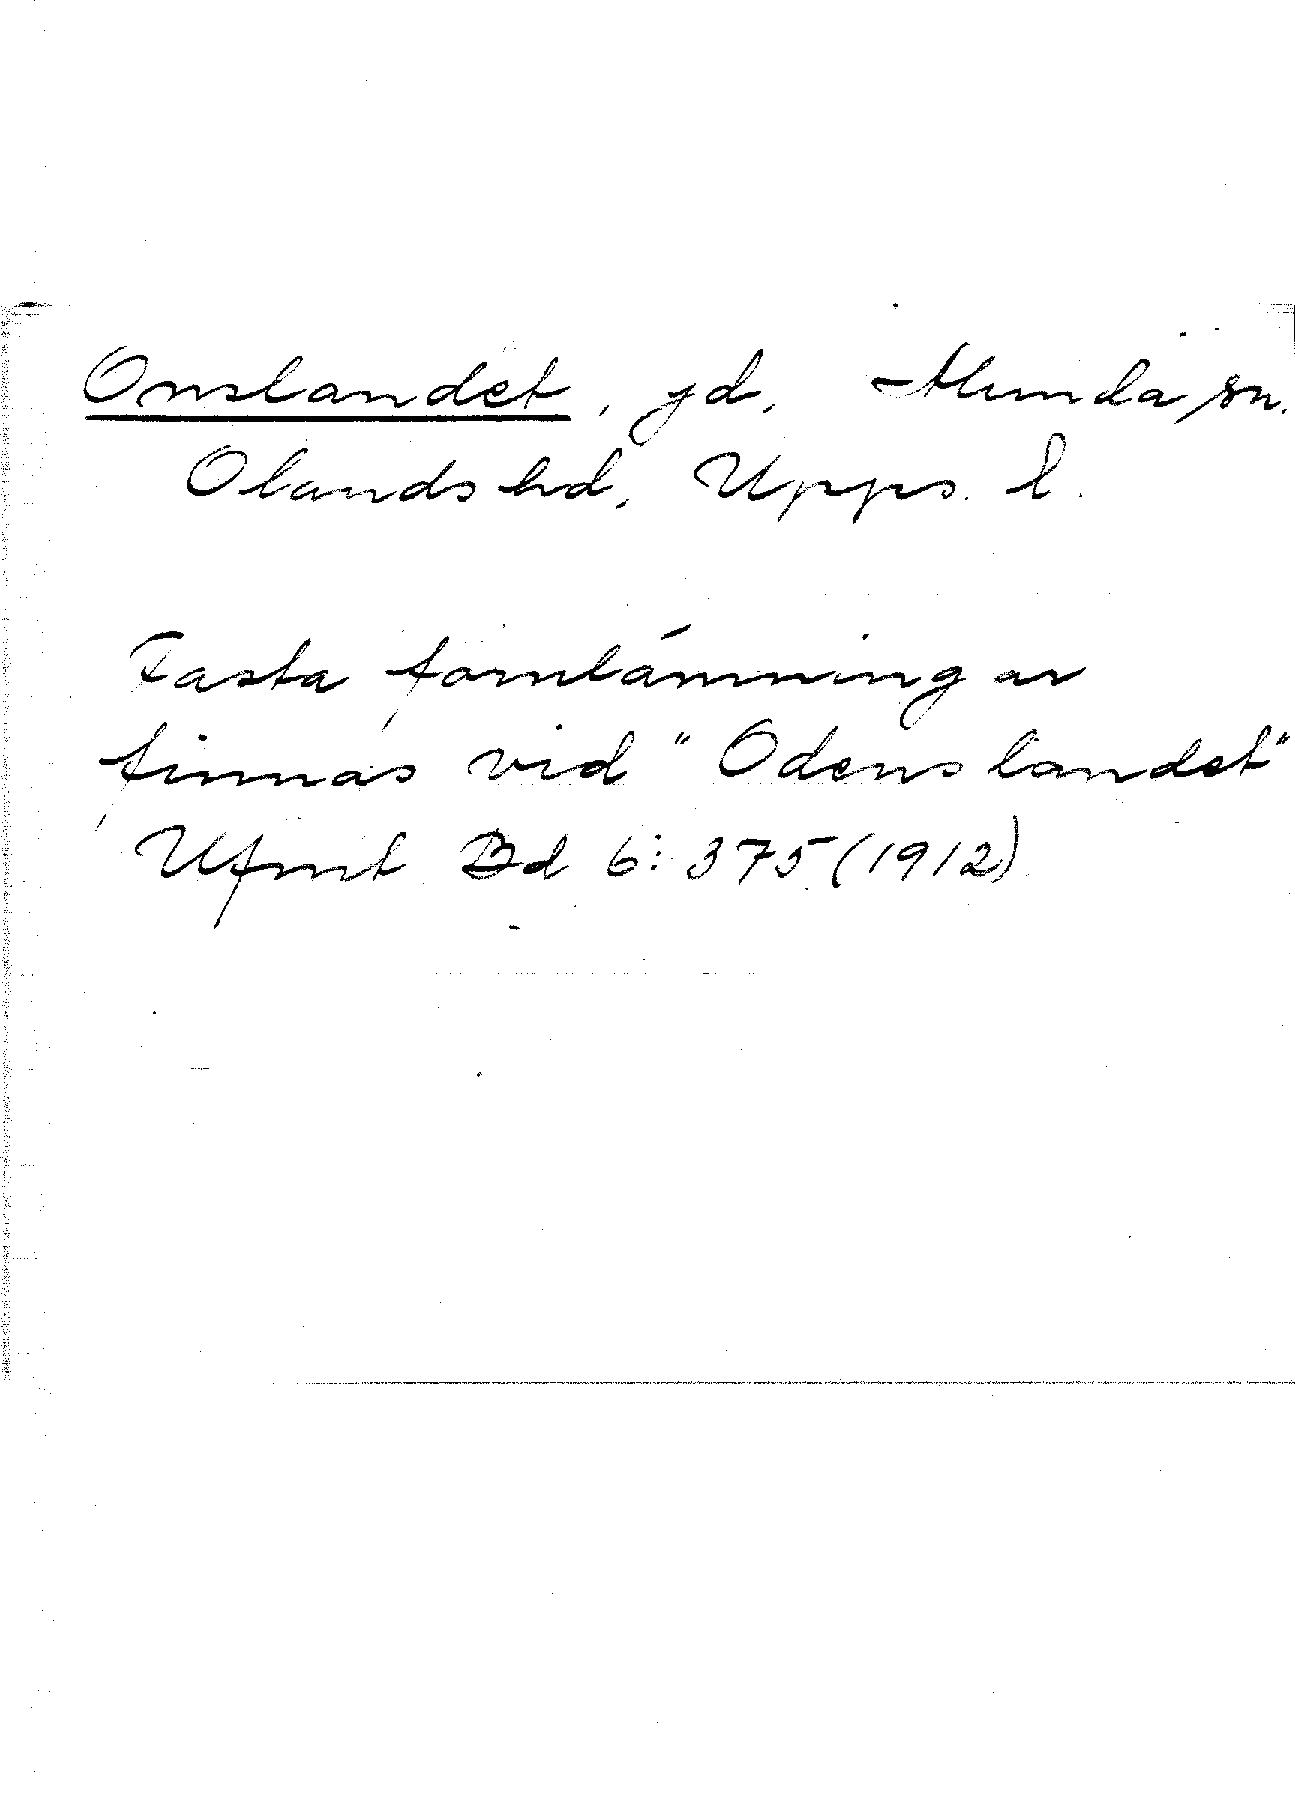 Onslandet, gd, Alunda sn.
Olands hd, Upps. l.
Fasta fornlämningar
finnas vid "Odenslandet"
Ufmt Bd 6: 375 (1912)